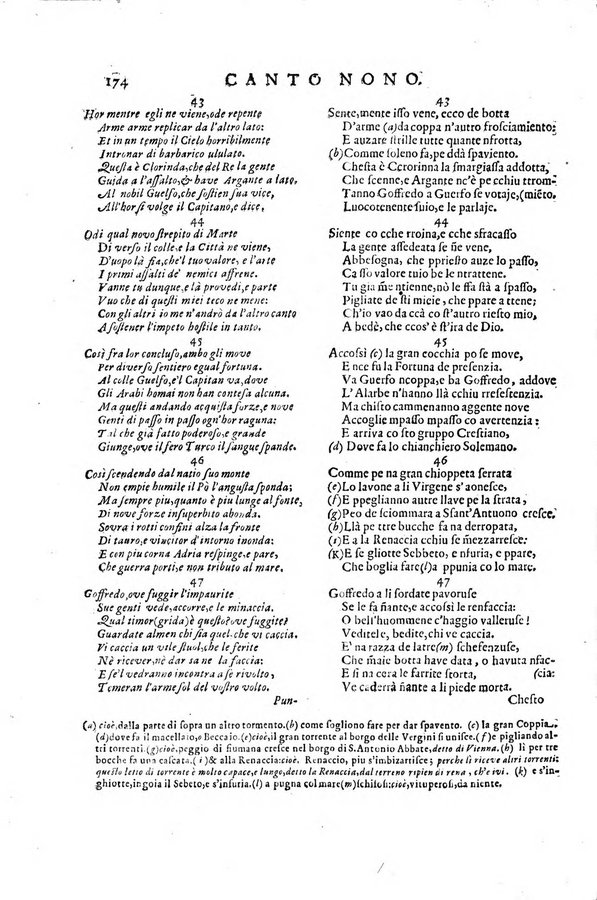 174 CANTO NONO.
43
Hor mentre egli ne viene, ode repente
Arme arme replicar da l'altro lato:
Et in un tempo il Cielo horribilmente
Intronar di barbarico ululato.
Questa è Clorinda, che del Re la gente
Guida a l'assalto, & have Argante a lato.
Al nobil Guelfo, che sostien sua vice,
All'horsi volge il Capitano, e dice,
44
Odi qual novo strepito di Marte
Di verso il colle, e la Città ne viene,
D'uopo là fia, che'l tuo valore, e l'arte
I primi assalti de' nemici affrene.
Vanne tu dunque, e là provedi, e parte
Vuo che di questi miei teco ne mene:
Con gli altri io me n'andrò da l'altro canto
A sostener l'impeto hostile in tanto.
45
Così fra lor concluso, ambo gli move
Per diverso sentiero egual fortuna.
Al colle Guelfo, e'l Capitan va, dove
Gli Arabi homai non han contesa alcuna.
Ma questi andando acquista forze, e nove
Genti di passo in passo ogn'hor raguna:
Tal che già fatto poderoso, e grande
Giunge, ove il fero Turco il sangue spande.
46
Così scendendo dal natio suo monte
Non empie humile il Pò l'angusta sponda;
Ma sempre piu, quanto è piu lunge al fonte,
Di nove forze insuperbito abonda.
Sovra i rotti confini alza la fronte
Di tauro, e vincitor d'intorno inonda:
E con piu corna Adria respinge, e pare,
Che guerra porti, e non tributo al mare.
47
Goffredo, ove fuggir l'impaurite
Sue genti vede, accorre, e le minaccia.
Qual timor (grida) è questo? ove fuggite?
Guardate almen chi sia quel, che vi caccia.
Vi caccia un vile stuol, che le ferite
Nè ricever, nè dar sa ne la faccia:
E se'l vedranno incontra a sè rivolto,
Temeran l'arme sol del vostro volto.
Pun-
43
Sente, mente isso vene, ecco de botta
D'arme (a) da coppa n'autro frosciamiento:
E auzare strille tutte quante nfrotta,
(b) Comme soleno fa, pe ddà spaviento.
Chesta è Ccrorinna la smargiassa addotta,
Che scenne, e Argante nc'è pe cchiu ttrom-
Tanno Goffredo a Guerfo se votaje, (miẽto.
Luocotenente suio, e le parlaje.
44
Siente co cche rroina, e cche sfracasso
La gente assedeata se ñe vene,
Abbesogna, che ppriesto auze lo passo,
Ca sso valore tuio be le ntrattene.
Tu gia mẽ ntienne, nò le fa stà a spasso,
Pigliate de sti mieie, che ppare a ttene;
Ch'io vao da ccà co st'autro riesto mio,
A bedè, che ccos'è st'ira de Dio.
45
Accossì (c) la gran cocchia po se move,
E nce fu la Fortuna de presenzia.
Va Guerfo ncoppa, e ba Goffredo, addove
L'Alarbe n'hanno llà cchiu rresestenzia.
Ma chisto cammenanno aggente nove
Accoglie mpasso mpasso co avertenzia:
E arriva co sto gruppo Crestiano,
(d) Dove fa lo chianchiero Solemano.
46
Comme pe na gran chioppeta serrata
(e) Lo lavone a li Virgene s'aonesce,
(f) E ppeglianno autre llave pe la strata,
(g) Peo de sciommara a Sant'Antuono cresce.
(h) Llà pe ttre bucche fa na derropata,
(i) E a la Renaccia cchiu se mezzarresce:
(K) E se gliotte Sebbeto, e nsuria, e ppare,
Che boglia fare (l) a pponia co lo mare.
47
Goffredo a li sordate pavoruse
Se le fa ñante, e accossi le renfaccia:
O bell'huommene c'haggio valleruse!
Veditele, bedite, chi ve caccia.
E' na razza de latre (m) schefenzuse,
Che m̃aie botta have data, o havuta nfac-
E si nca cera le farrite storta, (cia:
Ve caderrà ñante a li piede morta.
Chesto
(a) cioè, dalla parte di sopra un altro tormento. (b) come sogliono fare per dar spavento. (c) la gran Coppia.
(d) dove fa il macellaio, o Beccaio. (e) cioè, il gran torrente al borgo delle Vergini si unisce. (f) e pigliando al-
tri torrenti. (g) cioè, peggio di fiumana cresce nel borgo di S. Antonio Abbate, detto di Vienna. (h) li per tre
bocche fa una cascata. (i) & alla Renaccia: cioè. Renaccio, piu s'imbizarrisce; perche si riceve altri torrenti:
questo letto di torrente è molto capace, e lungo, detto la Renaccia, dal terreno ripien di rena, ch'è ivi. (k) e s'in-
ghiotte, ingoia il Sebeto, e s'infuria. (l) a pugna col mare (m) schifosi: cioè, vituperosi, da niente.